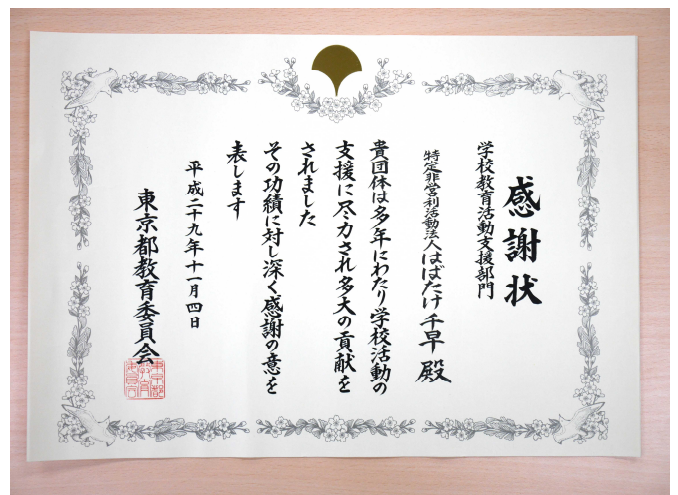 感謝状
学校教育活動支援部門
特定非営利活動法人はばたけ千早殿
貴団体は多年にわたり学校活動の
支援に尽力され多大の貢献を
されました
その功績に対し深く感謝の意を
表します
平成二十九年十一月四日
東京都教育委員会